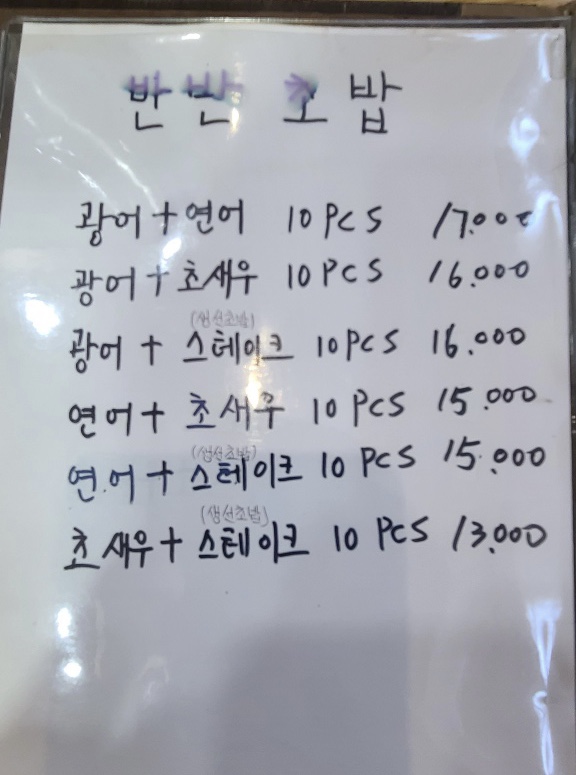 반반 초밥
광어+연어 10 PCS 17.000
광어+초새우 10 PCS 16.000
(생선초밥)
광어+스테이크 10 PCS 16.000
연어+초새우 10 PCS 15.000
(생선초밥)
연어+스테이크 10 PCS 15.000
(생선초밥)
초새우+스테이크 10 PCS 13.000